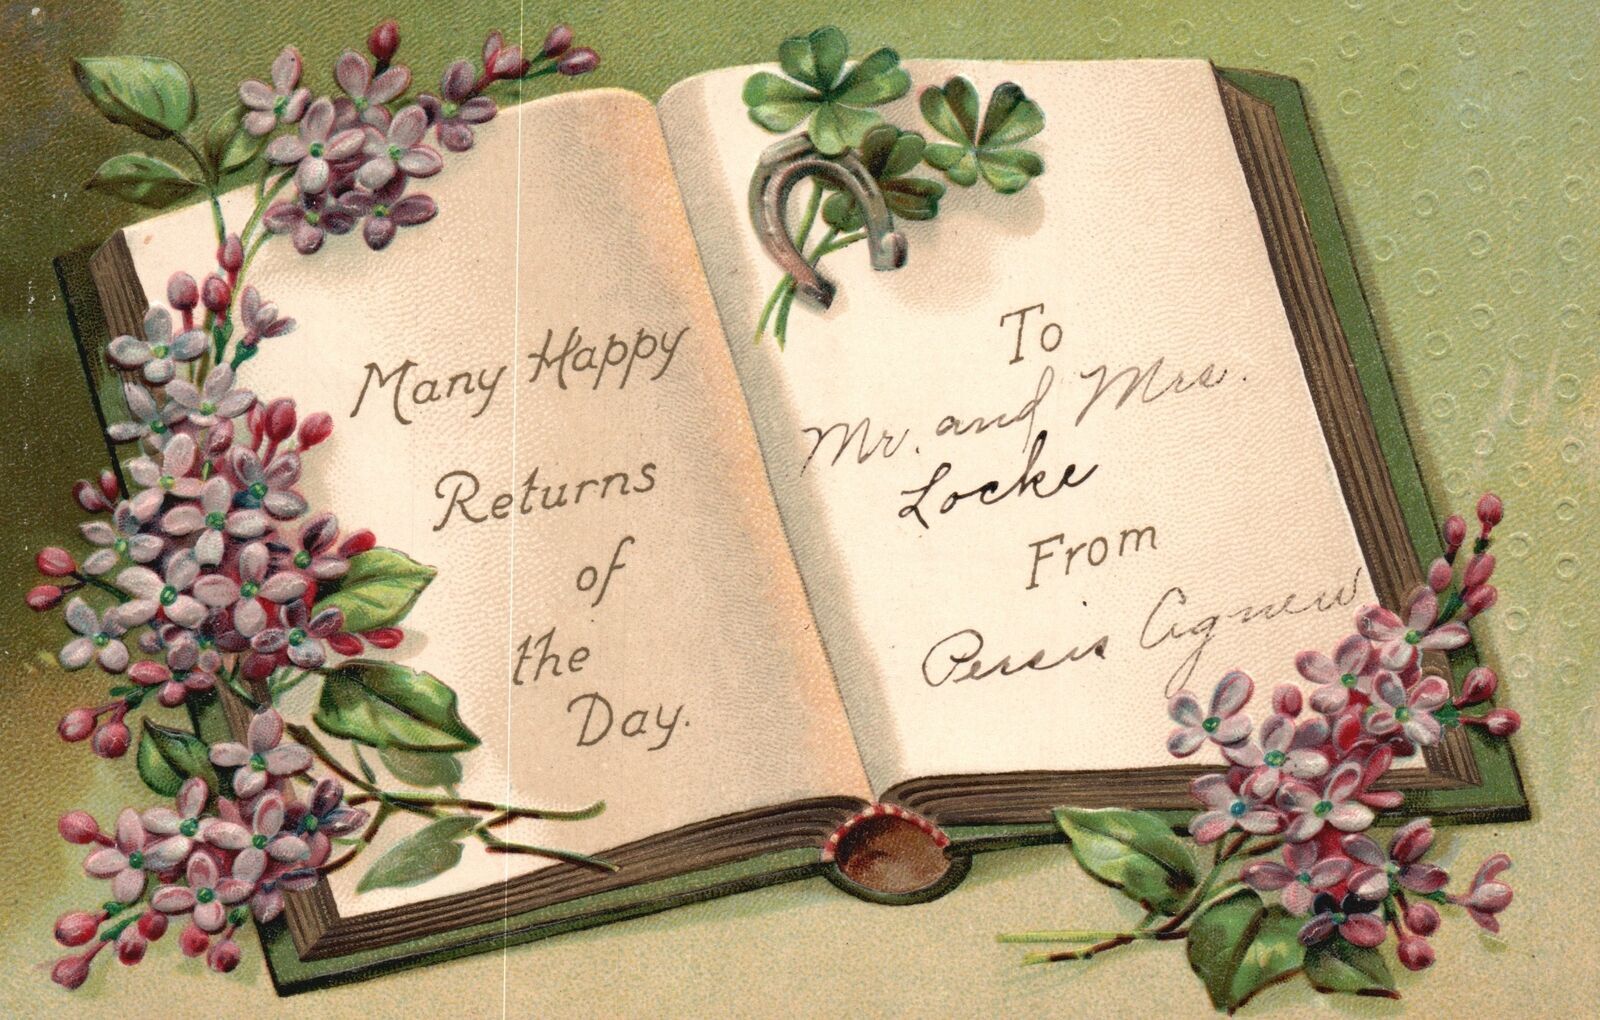 Many Happy
Returns
of
the
Day.
To
Mr. and Mrs.
Locke
From
Persis Agnew